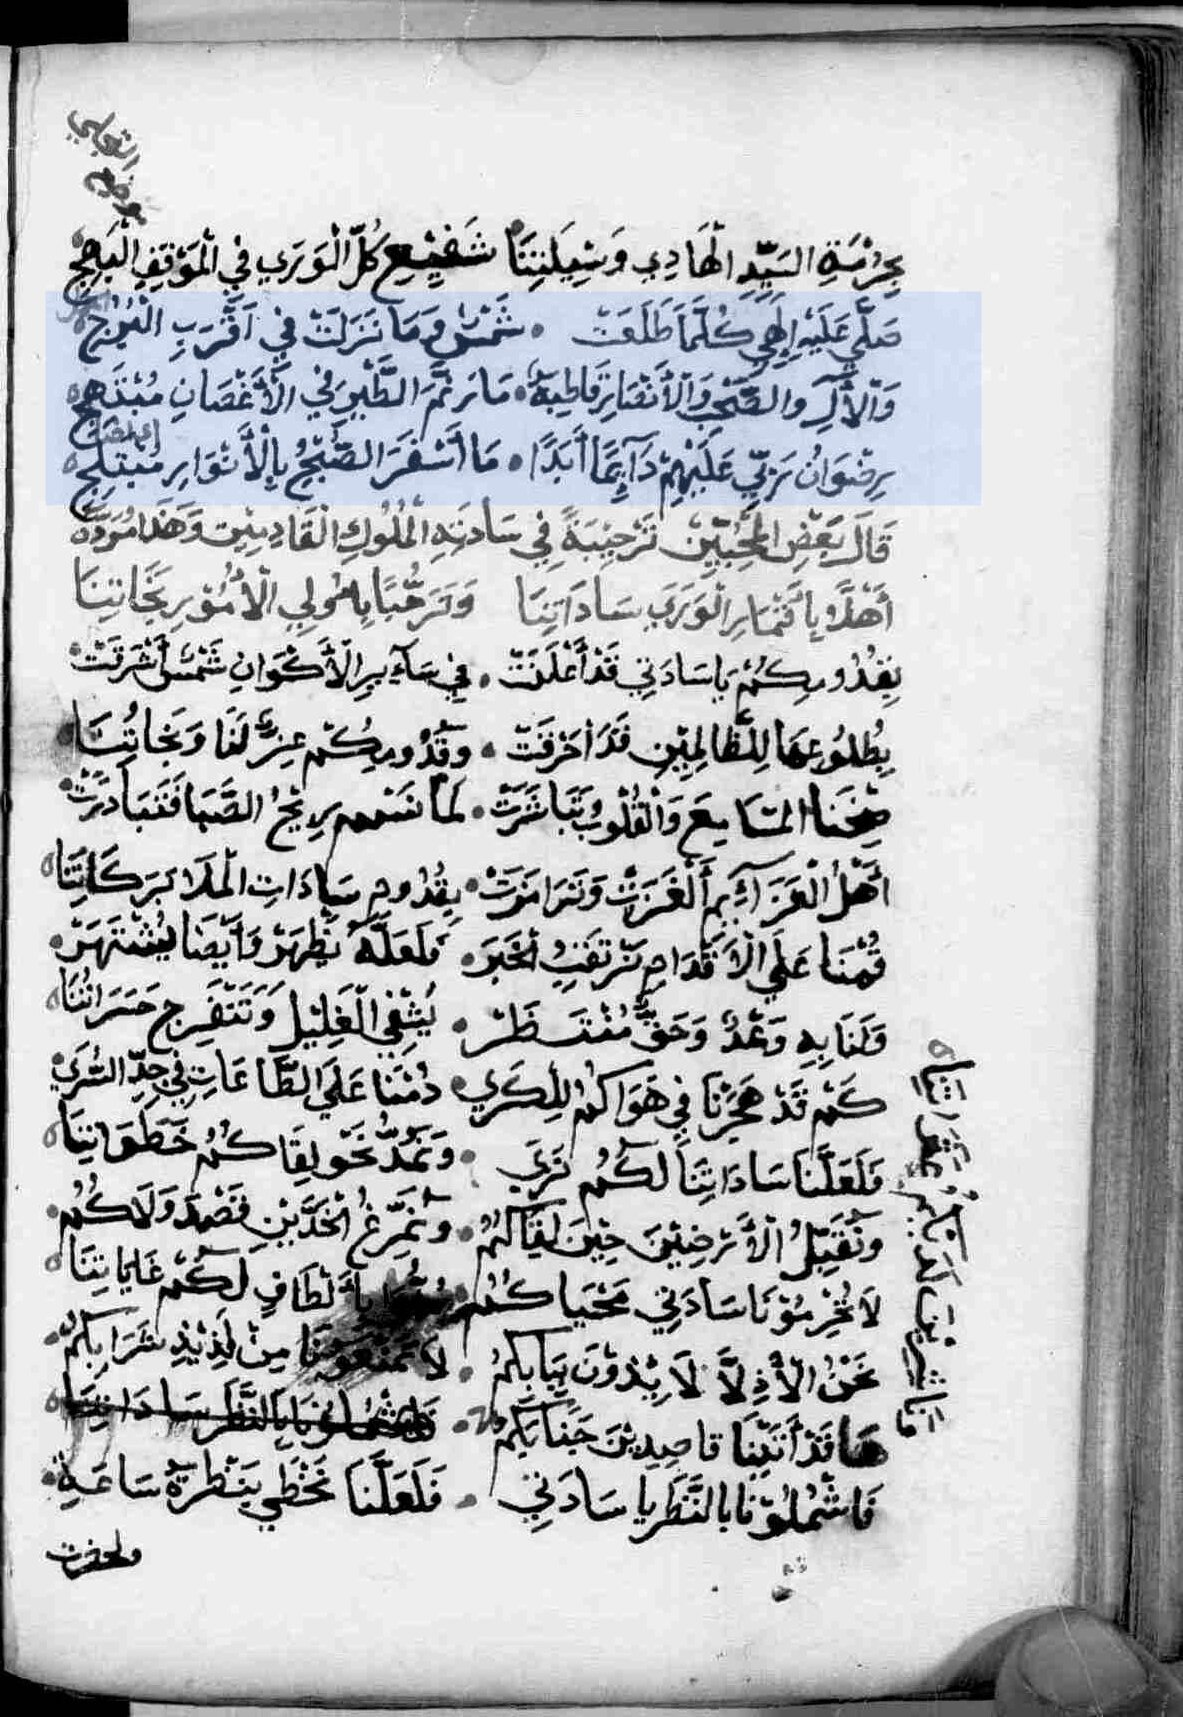 بِحُرْمَةِ السَّيِّدِ الْهَادِي وَسِيْلَتِنَا شَفِيْعِ كُلِّ الْوَرَي فِي الْمَوْقِفِ الْبَهِجِ
صَلَّي عَلَيْهِ اِلَهِي كُلَّمَا طَلَعَتْ شَمْسٌ وَمَا نَزَلَتْ فِي اَقْرَبِ الْبُرُجِ
وَالْاٰلِ وَالصَّحْبِ وَالْأَنْصَارِ قَاطِبَةً مَا رَنَّمَ الطَّيْرُ فِي الْأَغْصَانِ مُبْتَهِجِ
رِضْوَانُ رَبِّي عَلَيْهِمْ دَآئِمًا أَبَدًا مَا اَسْفَرَ الصُّبْحُ بِالْأَنْوَارِ مُبْتَلِجِ
قَالَ بَعْضُ الْمُحِبِّيْنَ تَرْحِيْبَةً فِي سَادَتِهِ الْمُلُوكِ الْقَادِمِيْنَ وَهَذَا
أَهْلًا يَا قْمَارِ الْوَرَي سَادَاتِنَا وَمَرْحَبًا بِاُولِي الْأُمُوْرِ نَجَاتِنَا
بِقُدُومِكُمْ يَا سَادَتِي قَدْ أَعْلَنَتْ فِي سَآئِرِ الْأَكْوَانِ شَمْسٌ أَشْرَقَتْ
بِطُلُوعِهَا لِلظَّالِمِيْنَ قَدَ احْرَقَتْ وَقُدُومِكُمْ عِزٌّ لَنَا وَنَجَاتُنَا
الْمَسَامِعَ وَالْقُلُوبُ تَبَاشَرَتْ لَمَّا نَسَمَ رِيْحُ الصَّبَا فَتَبَادَرَتْ
أَهْلُ الْعَزَآئِمِ وَتَرَامَزَتْ بِقُدُومِ سَادَاتِ الْمَلَا بَرَكَاتِنَا
قُمْنَا عَلَي الْاَقْدَامِ نَرْتَقِبُ الْخَبَرْ فَلَعَلَّهُ يَظْهَرْ وَأَيْضًا يُشْتَهَرْ
وَلَنَا بِهِ وَعْدٌ وَحَقٌّ مُنْتَظَرْ يُشْفِي الْغَلِيْلَ وَتَنْفَرِجْ حَسَرَاتُنَا
كَمْ قَدْ هَجَرْنَا فِي هَوَاكُمْ لِلْكَرَي دُمْنَا عَلَي الطَّاعَاتِ فِي جِدِّ السُّرَي
فَلَعَلَّنَا سَادَاتِنَا لَكُمُ نَرَي وَنَمُدُّ نَحْوَ لِقَاكُمُ خَطَوَاتِنَا
وَنُقَبِّلُ الْأَرْضِيْنَ حِيْنَ لِقَاكُمُ وَنُمَرِّغُ الْخَدَّيْنِ قَصْدَ وَلَاكُمُ
لَا تُحْرِمُوْنَا سَادَتِي مَحْيَاكُمُ بِأَلْطَافٍ لَكُمْ غَايَاتِنَا
نَحْنُ الْأَذِلَّا لَائِذُوْنَ بِبَابِكُمُ لَا تَمْنَعُوْنَا مِنْ لَذِيْذِ شَرَابِكُمُ
هَا قَدْ أَتَيْنَا قَاصِدِيْنَ جَنَابَكُمُ فَاشْمُلُوْنَا بِالنَّظَرْ سَادَاتِنَا
فَاشْمُلُوْنَا بِالنَّظَرْ يَا سَادَتِي فَلَعَلَّنَا نَحْظَي بِنَظْرَةِ سَاعَةِ